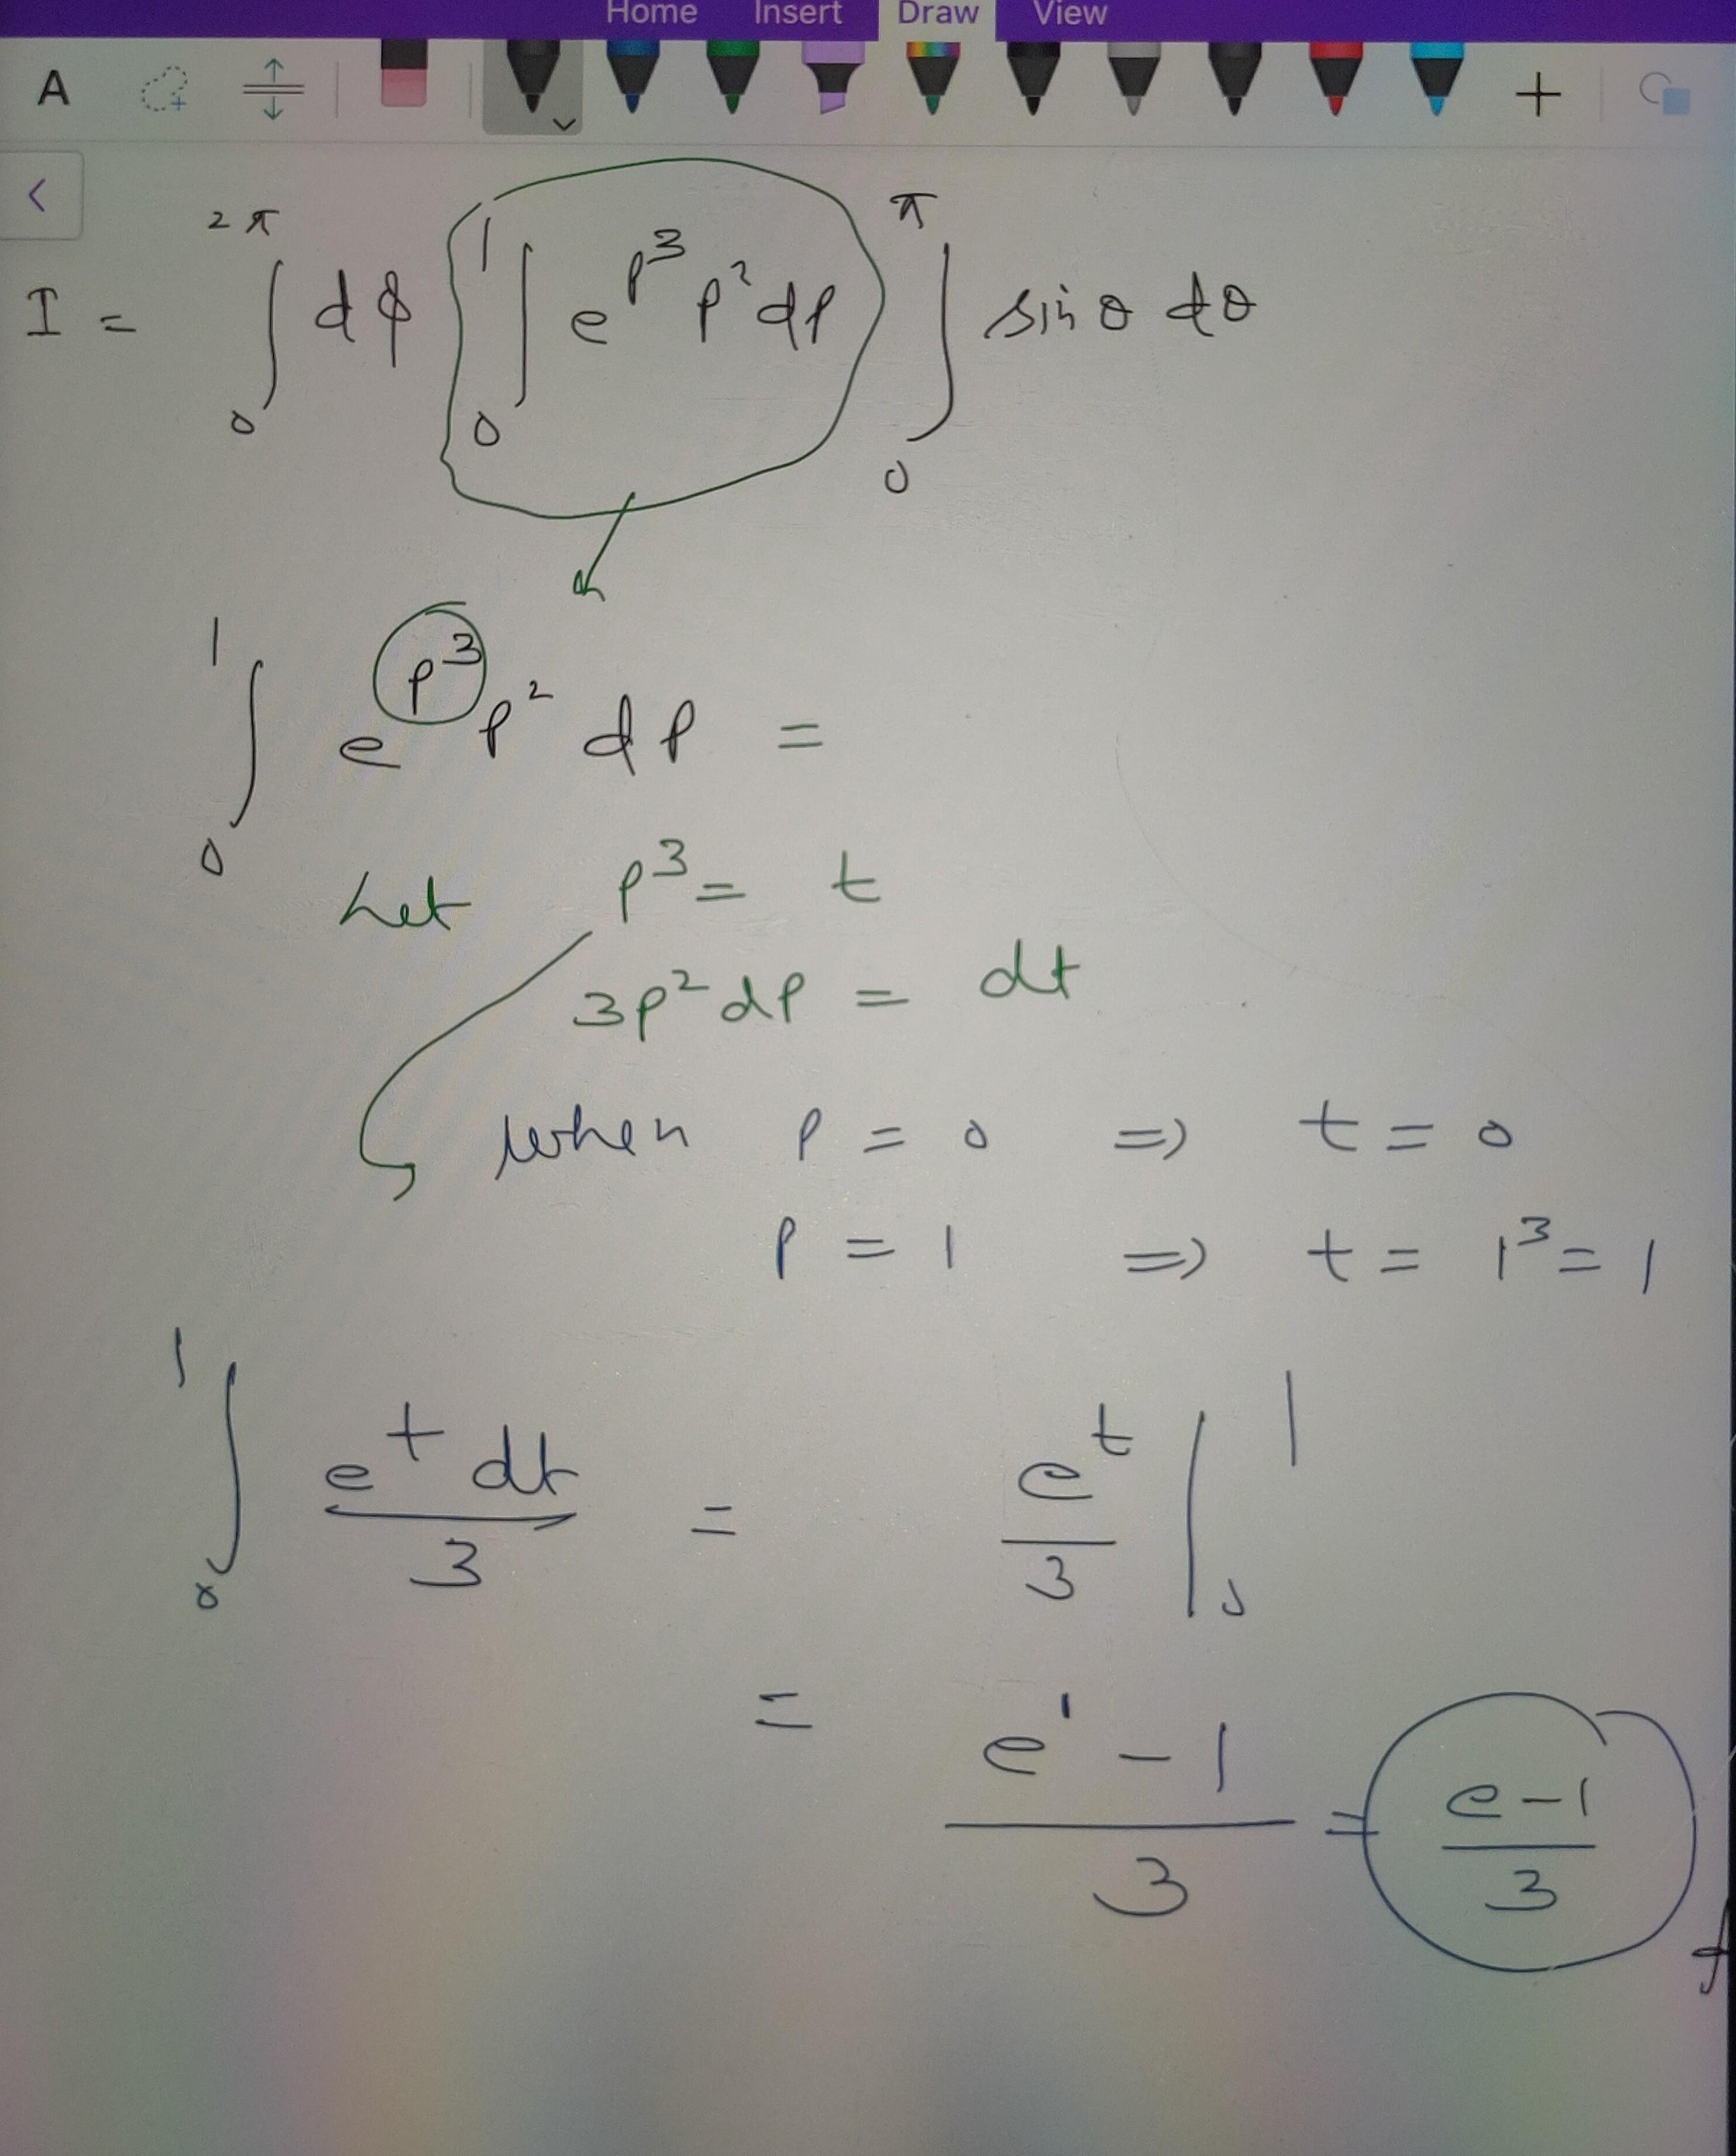 Home Insert Draw View
A
I = ∫₀^{2π} dϕ ∫₀^{1} e^{ρ³} ρ² dρ ∫₀^{π} sin θ dθ
∫₀^{1} e^{ρ³} ρ² dρ =
Let ρ³ = t
3ρ² dρ = dt
when ρ = 0 ⇒ t = 0
ρ = 1 ⇒ t = 1³ = 1
∫₀^{1} e^t dt / 3 = e^t / 3 |₀^{1}
= (e¹ − 1) / 3 = (e − 1) / 3